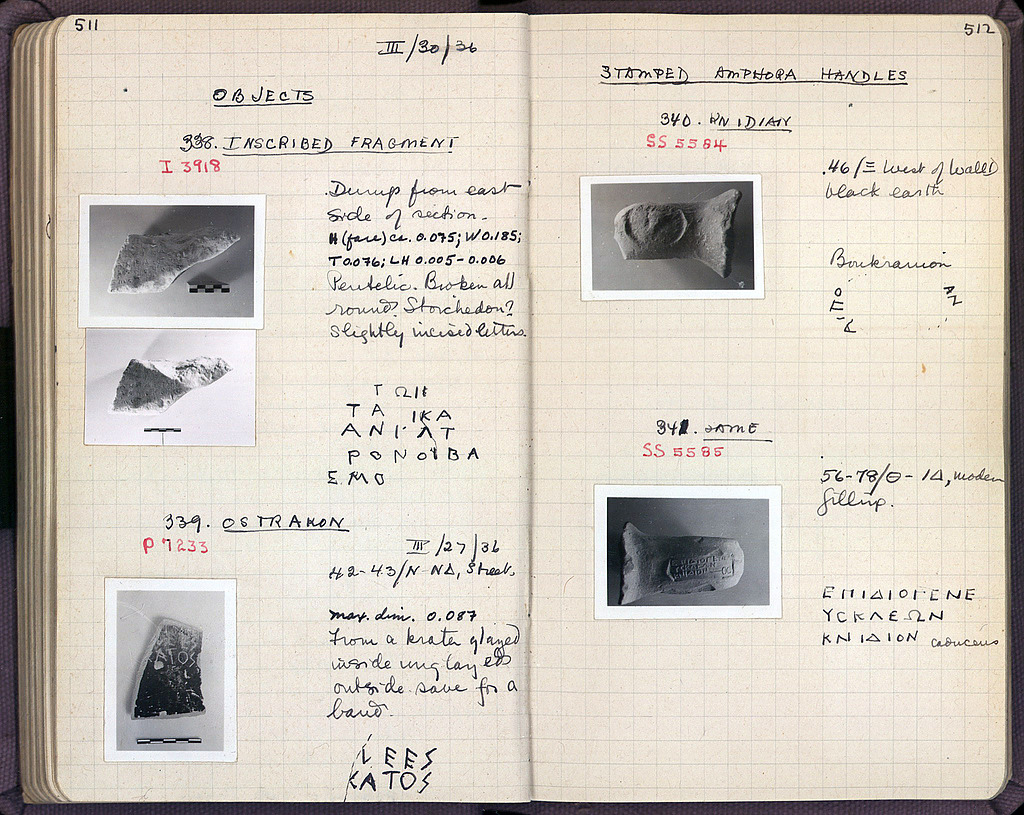 511
III/30/36
OBJECTS
338. INSCRIBED FRAGMENT
I 3918
Dump from east
side of section.
H (face) ca. 0.075; W 0.185;
T 0.076; LH 0.005-0.006
Pentelic. Broken all
round. Stoichedon?
Slightly incised letters.
Τ ΩΙ
ΤΑ ΙΚΑ
ΑΝΙ ΛΤ
ΡΟΝΟΙΒΑ
ΕΜΟ
339. OSTRAKON
P 7233
III/27/36
42-43/Ν-ΝΔ, Street.
max. dim. 0.087
From a krater glazed
inside unglazed
outside save for a
band.
LEES
KATOS
512
STAMPED AMPHORA HANDLES
340. KNIDIAN
SS 5584
46/Ξ West of Wall
black earth
Boukranion
341. SAME
SS 5585
56-78/Θ-ΙΔ, modern
filling.
ΕΠΙΔΙΟΓΕΝΕ
ΥΣΚΛΕΩΝ
ΚΝΙΔΙΟΝ caduceus